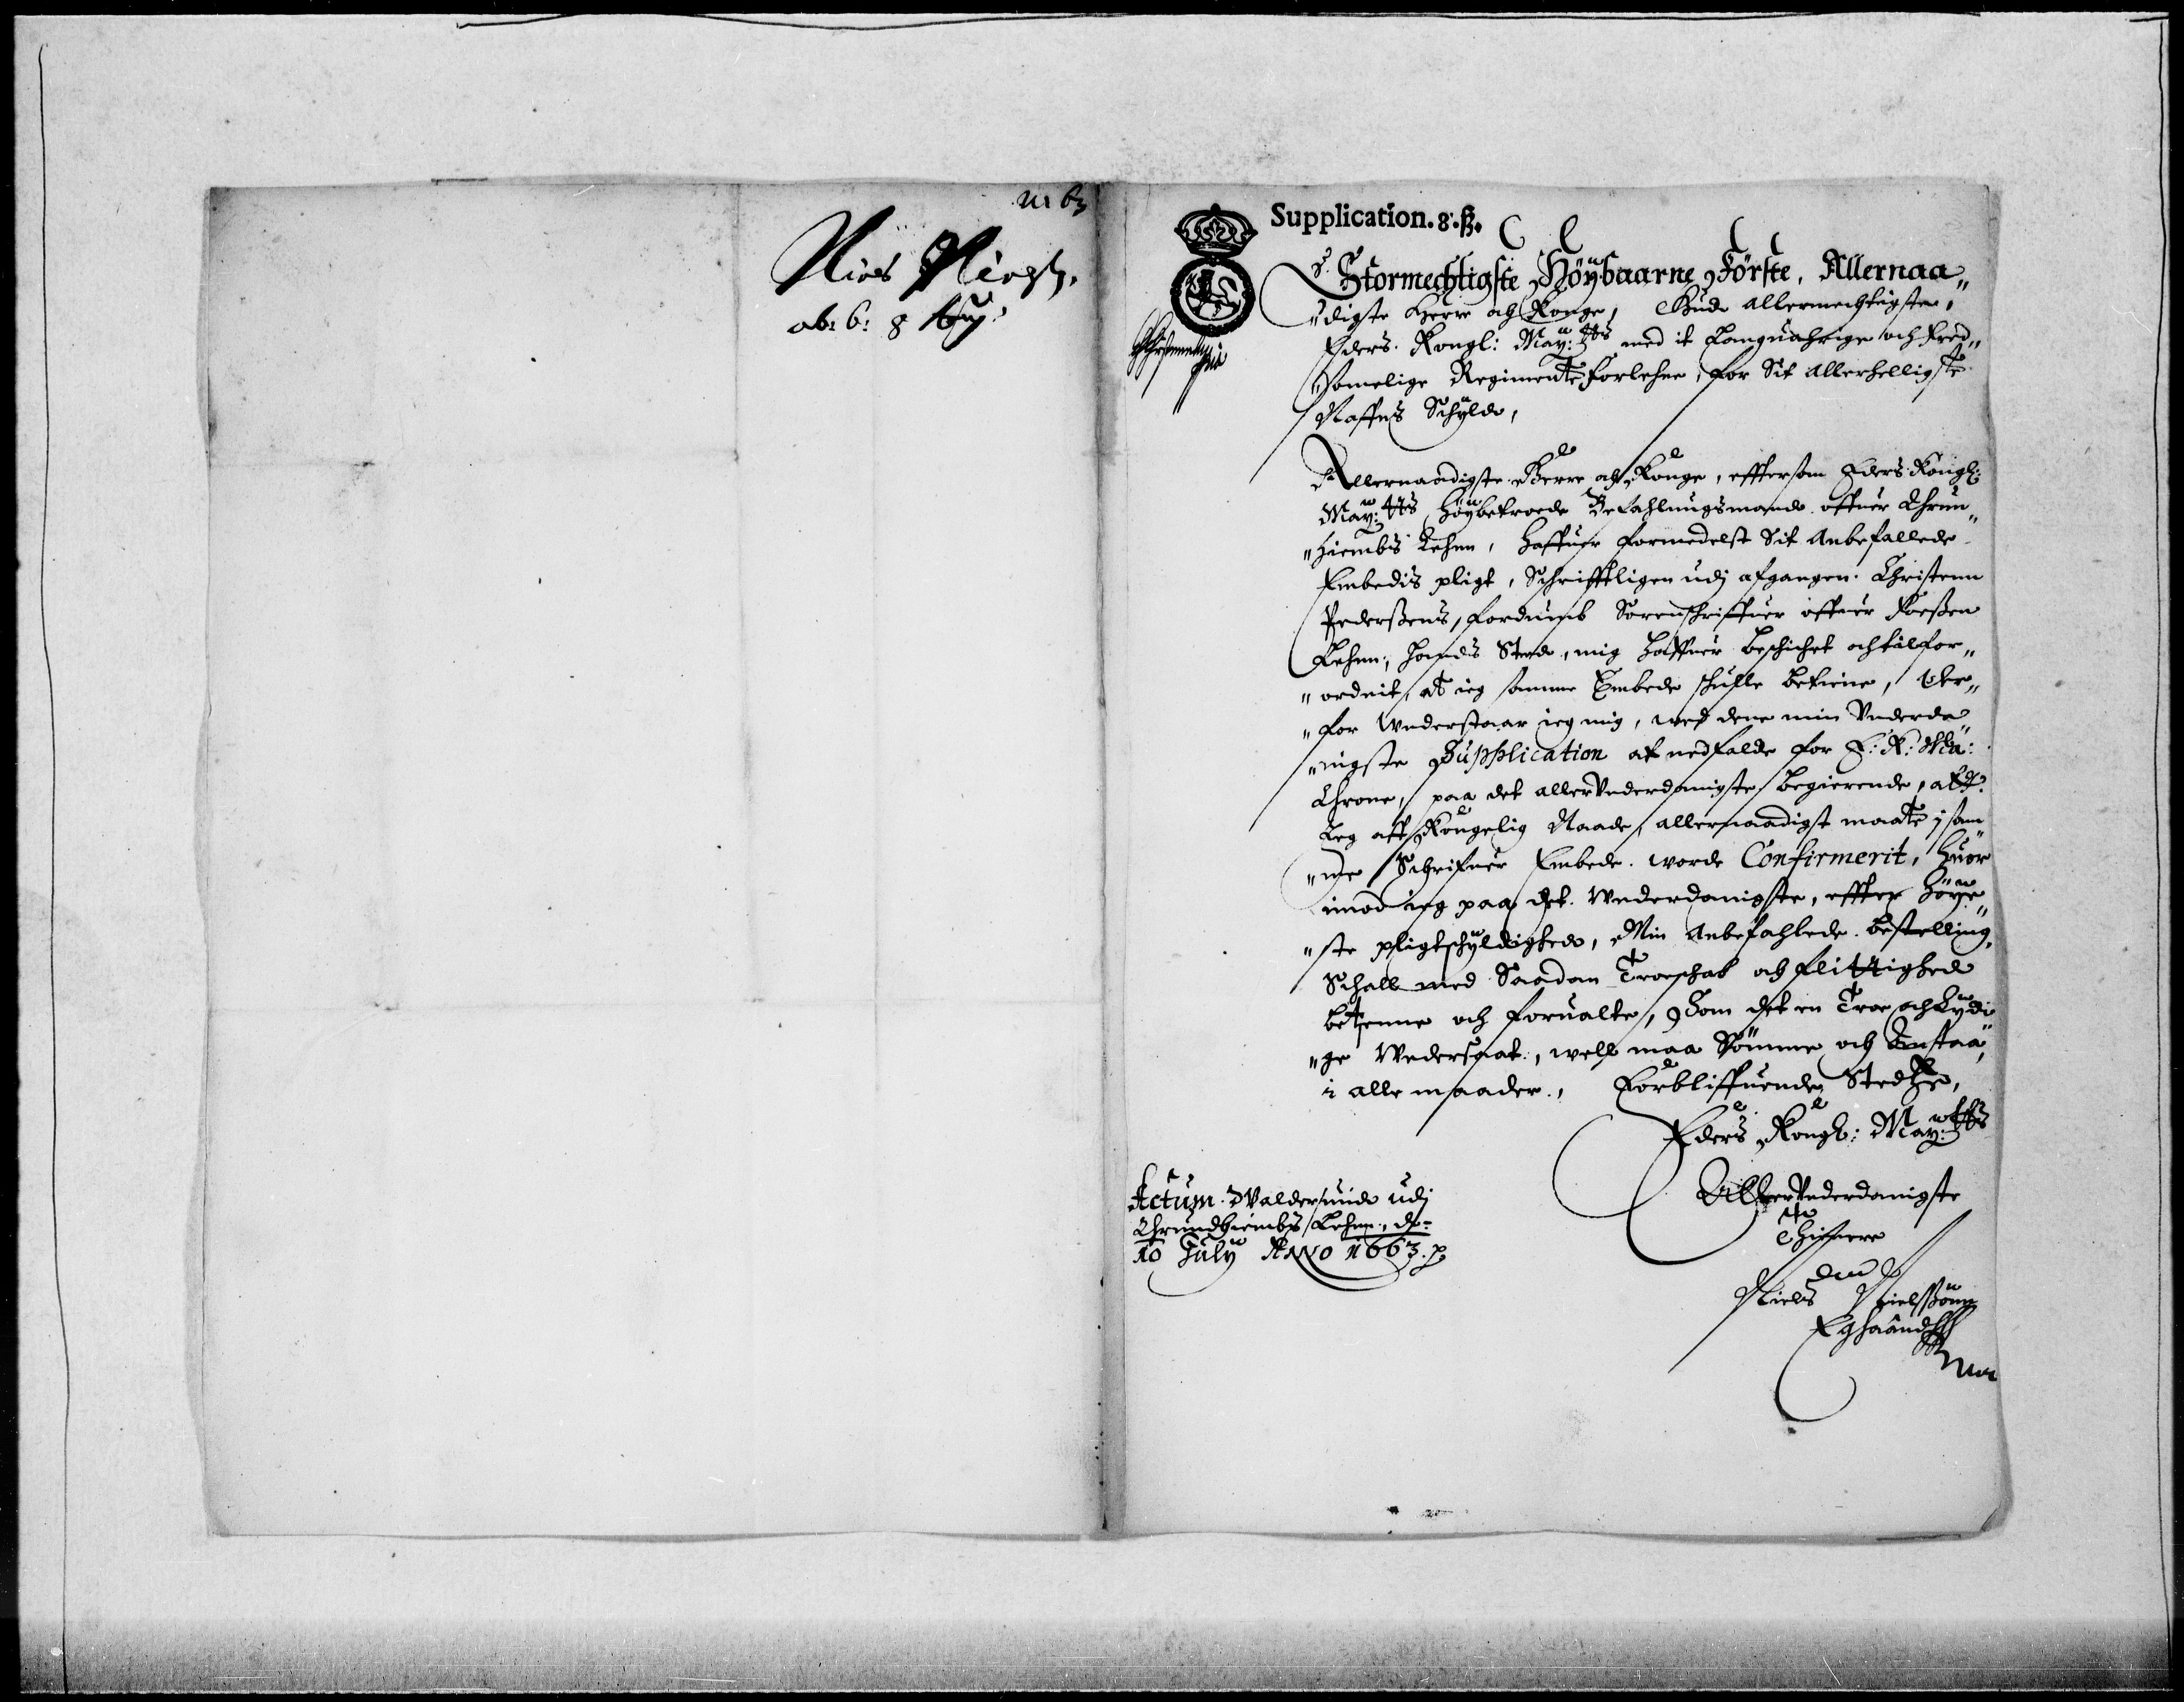 Supplication. 8. ß.
Stormechtigste Höÿbaarne Förste, Allernaa„
„digste Herre och Konge, Gud allermechtigste,
Eders Kongl: Maÿ:tts med it langvahrige och fred„
„somelige Regimente forlehne, for Sit allerhelligste
Naffns Schÿld,
Allernaadigste Herre och Konge, effterson Eders Kongl:
Maÿ:tts Höÿbetroede Befahlningsmand offuer Thrun„
„hiembs Lehnn, haffuer formedelst Sit Anbefallede
Embedis pligt, Schrifftligen udj afgangen Christenn
Pederßens, fordumb Sorenschriffuer offuer Foeßen
Lehnn, hands Sted, mig haffuer beschichet och tilfor„
„ordnit, at ieg samme Embede schulle betiene, Der„
„for Wnderstaar ieg mig, med dene min Vnderda„
„nigste Supplication at nedfalde for E: K: Ma:
Throne, paa det allerVnderdanigste begierende, at
Ieg aff Kongelig Naade, allernaadigst maatte j sam„
„me Schrifuer Embede worde Confirmerit, huor
imod ieg paa det Wnderdanigste, effter höÿe„
„ste pligtschÿldighed, Min Anbefahlede bestelling,
Schall med Saadan Troeschab och flittighed
betienne och forualte, Som det en Troe och Lÿdi„
„ge Wndersaat, well maa Sömme och Anstaa,
i alle maader, Forbliffuende Stedtze,
Eders Kongl: Maÿ:tts
AllerVnderdanigste
Thienere
Niels Nielßönn
Eghaand
Actum Waldersund udj
Thrundhiembs Lehnn, d.
10 Julÿ Anno 1663.
Niels Nielß.